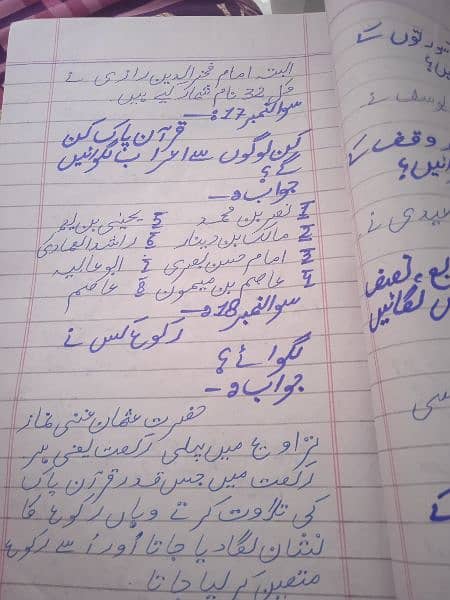 البتہ امام فخرالدین رازی نے
کل 32 نام شمار کیے ہیں
سوالنمبر 17:-
قرآن پاک کن
کن لوگوں سے اعراب لگوائیں
گے؟
جواب:-
1 نصر بن محمد 5 یحیٰی بن
2 مالک بن دینار 6 راشد الحمادی
3 امام حسن بصری 7 ابو عالیہ
4 عاصم بن میمون 8 عاصم
سوالنمبر 18:-
رکوع کس نے
لگوائے؟
جواب:-
حضرت عثمان غنی نماز
تراویح میں پہلی رکعت یعنی ہر
رکعت میں جس قدر قرآن پاک
کی تلاوت کرتے وہاں رکوع کا
نشان لگا دیا جاتا اور اسے رکوع
متعین کر لیا جاتا